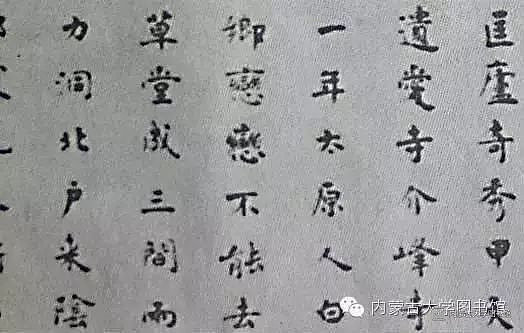 匡廬奇秀甲天
遺愛寺介峰寺
一年太原人白
鄉戀戀不能去
草堂成三間兩
力洞北戶來陰
内蒙古大学图书馆